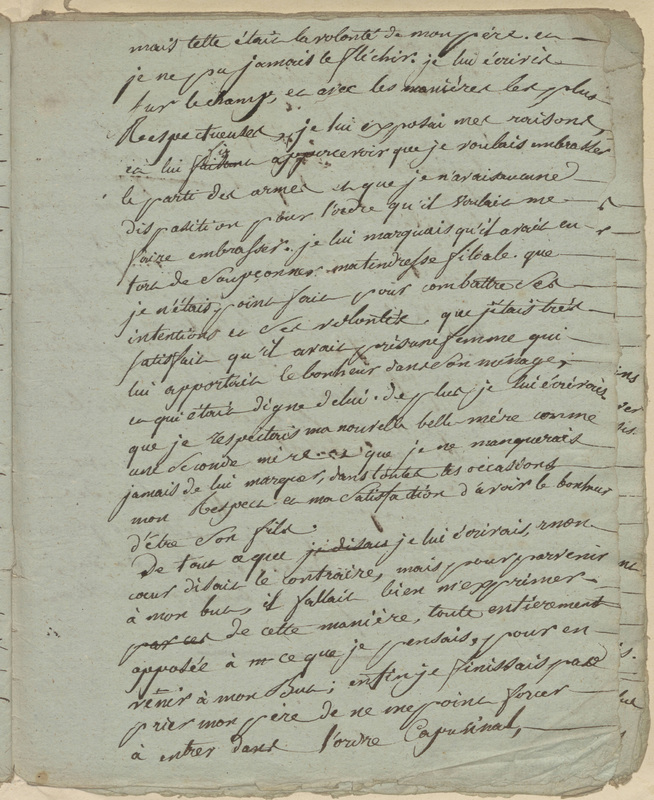 mais telle était la volonté de mon père. et
je ne pu jamais le fléchir. je lui écrivis
sur le champ, et avec les manières les plus
Respectueuses, je lui exposai mes raisons,
et lui fis faisant appercevoir que je voulais embrasser
le parti des armes et que je n'avais aucune
disposition pour l'ordre qu'il voulait me
faire embrasser. je lui marquais qu'il avait eu
tort de soupçonner ma tendresse filiale. que
je n'étais point fait pour combattre ses
intentions et ses volontés, que j'étais très
satisfait qu'il avait pris une femme qui
lui apportait le bonheur dans son ménage,
et qui était digne de lui. de plus je lui écrivais
que je respectais ma nouvelle belle-mère comme
une seconde mère et que je ne manquerais
jamais de lui marquer, dans toutes les occasions
mon Respect et ma satisfaction d'avoir le bonheur
d'être son fils.
De tout ce que je disais je lui écrivais, mon
cœur disait le contraire, mais pour parvenir
à mon but, il fallait bien m'exprimer
par ces de cette manière, toute entièrement
opposée à ce que je pensais, pour en
venir à mon But; enfin je finissais par
prier mon père de ne me point forcer
à entrer dans l'ordre Capusinal,
ins
nt